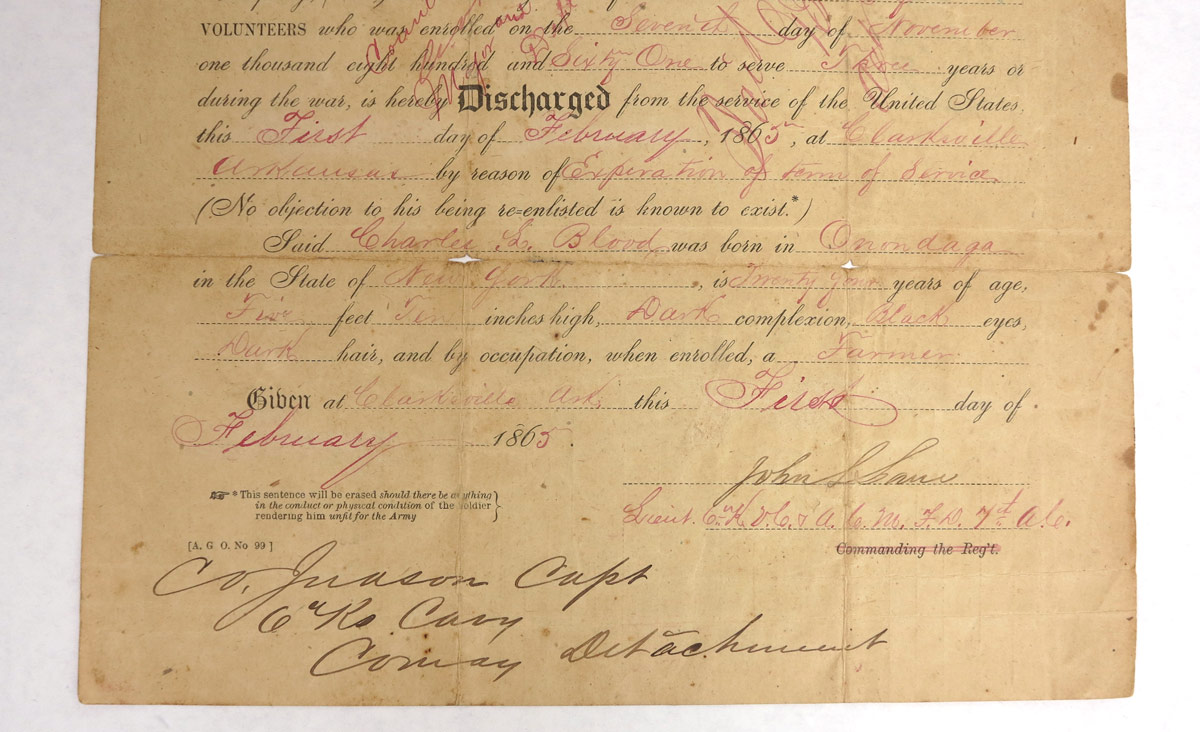 VOLUNTEERS who was enrolled on the Seventh day of November
one thousand eight hundred and Sixty One to serve Three years or
during the war, is hereby Discharged from the service of the United States,
this First day of February, 1865, at Clarksville
Arkansas by reason of Expiration of term of Service
(No objection to his being re-enlisted is known to exist.*)
Said Charles L. Blood was born in Onondaga
in the State of New York, is Twenty Four years of age,
Five feet Ten inches high, Dark complexion, Black eyes,
Dark hair, and by occupation, when enrolled, a Farmer.
Given at Clarksville Ark this First day of
February 1865.
John
*This sentence will be erased should there be anything
in the conduct or physical condition of the soldier
rendering him unfit for the Army
Lieut. 6th K. V. C. & A. C. M. F. D. 7th A. C.
Commanding the Reg't.
[A. G O. No 99]
Judson Capt
6" Ks Cavy
Detachment